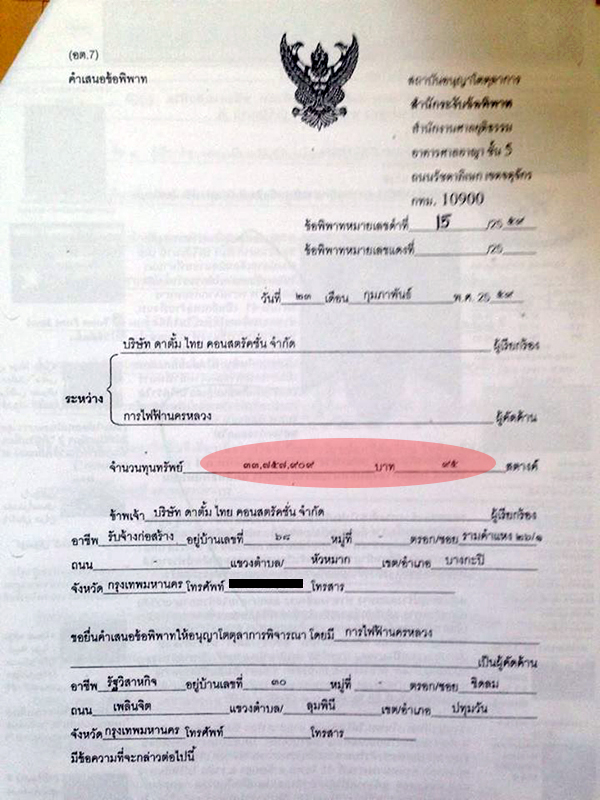 (อต.7)
คำเสนอข้อพิพาท
สถาบันอนุญาโตตุลาการ
สำนักระงับข้อพิพาท
สำนักงานศาลยุติธรรม
อาคารศาลอาญา ชั้น 5
ถนนรัชดาภิเษก เขตจตุจักร
กทม. 10900
ข้อพิพาทหมายเลขดำที่ 15 /25 ๕๙
ข้อพิพาทหมายเลขแดงที่ /25
วันที่ ๒๓ เดือน กุมภาพันธ์ พ.ศ. 25 ๕๙
บริษัท ดาตั้ม ไทย คอนสตรัคชั่น จำกัด ผู้เรียกร้อง
ระหว่าง
การไฟฟ้านครหลวง ผู้คัดค้าน
จำนวนทุนทรัพย์ ๓๓,๗๕๗,๙๐๙ บาท ๙๕ สตางค์
ข้าพเจ้า บริษัท ดาตั้ม ไทย คอนสตรัคชั่น จำกัด ผู้เรียกร้อง
อาชีพ รับจ้างก่อสร้าง อยู่บ้านเลขที่ ๖๘ หมู่ที่ - ตรอก/ซอย รามคำแหง ๒๖/๑
ถนน - แขวงตำบล/ หัวหมาก เขต/อำเภอ บางกะปิ
จังหวัด กรุงเทพมหานคร โทรศัพท์ โทรสาร
ขอยื่นคำเสนอข้อพิพาทให้อนุญาโตตุลาการพิจารณา โดยมี การไฟฟ้านครหลวง
เป็นผู้คัดค้าน
อาชีพ รัฐวิสาหกิจ อยู่บ้านเลขที่ ๓๐ หมู่ที่ - ตรอก/ซอย ชิดลม
ถนน เพลินจิต แขวงตำบล/ ลุมพินี เขต/อำเภอ ปทุมวัน
จังหวัด กรุงเทพมหานคร โทรศัพท์ โทรสาร
มีข้อความที่จะกล่าวต่อไปนี้